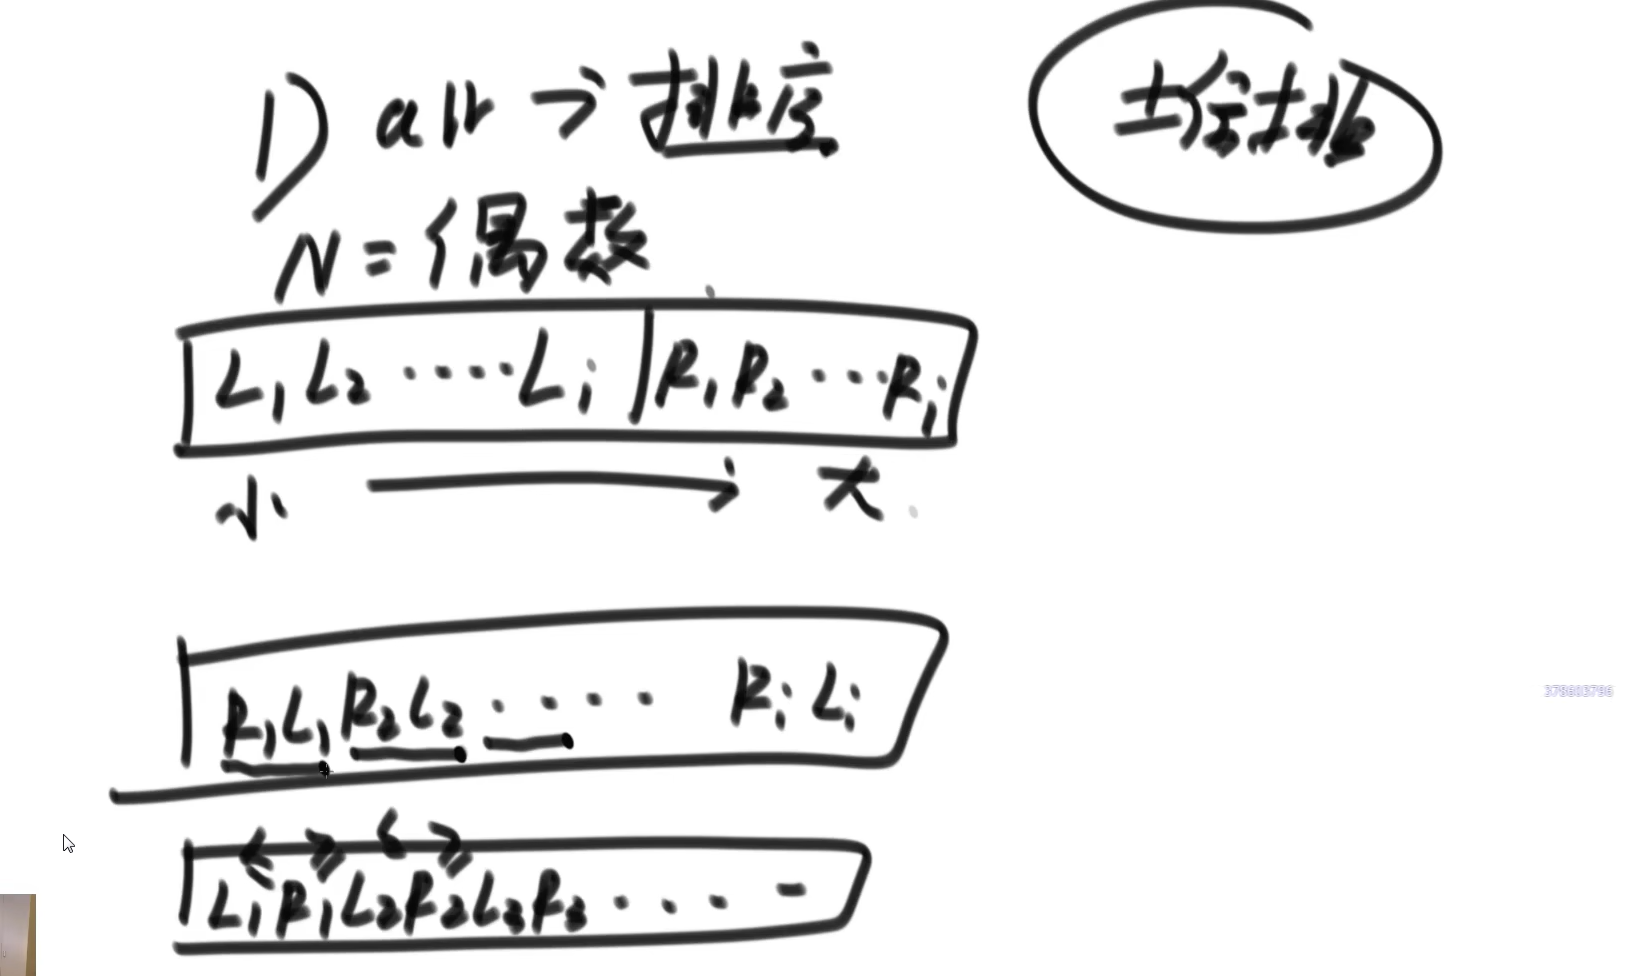 1) arr → 排序
堆排
N = 偶数
L1 L2 ····· Li | R1 R2 ··· Ri
小 → 大
R1L1 R2L2 ···· Ri Li
< ≥ < ≥
L1 R1 L2 R2 L3 R3 ····
378603796